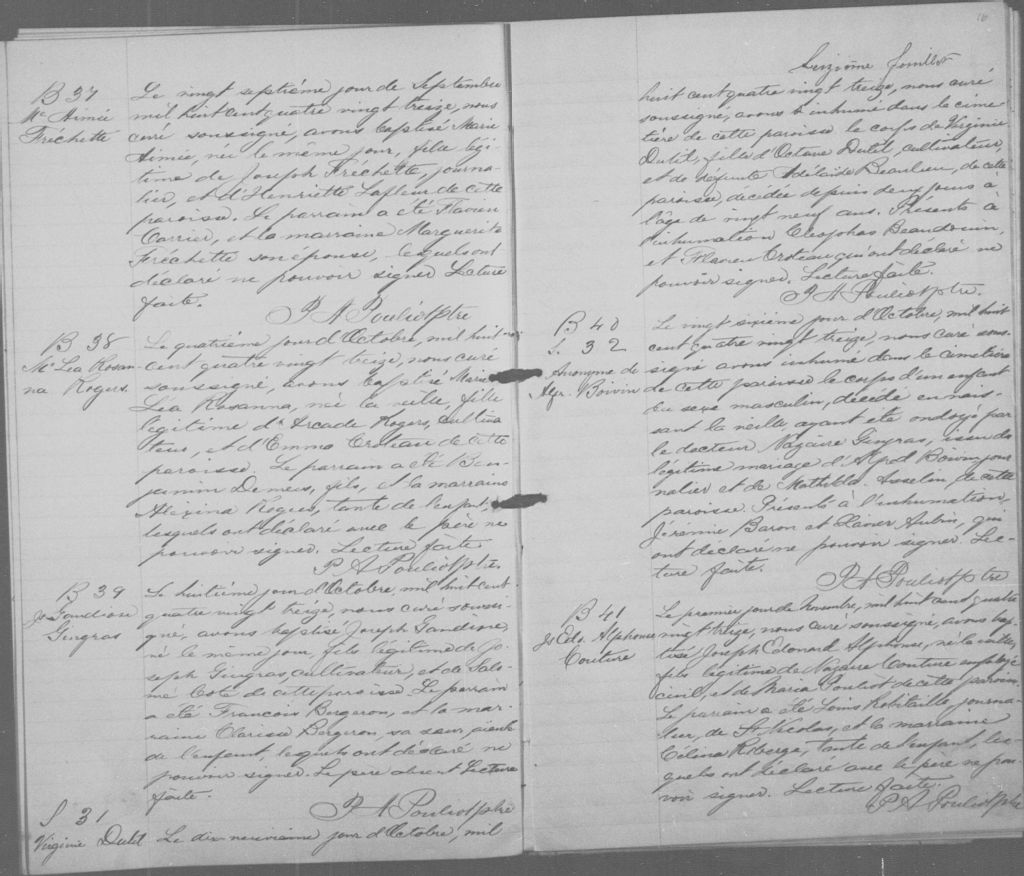 B 37
Mie Aimée
Fréchette
Le vingt septième jour de Septembre
mil huit cent quatre vingt treize, nous
curé soussigné, avons baptisé Marie
Aimée, née le même jour, fille légi-
time de Joseph Fréchette, journa-
lier, et d'Henriette Lafleur de cette
paroisse. Le parrain a été Flavien
Carrier, et la marraine Marguerite
Fréchette son épouse, lesquels ont
déclaré ne pouvoir signer Lecture
faite.
P A Pouliot Ptre
B 38
Mie Léa Rosan-
na Rogers
Le quatrième jour d'Octobre, mil huit
cent quatre vingt treize, nous curé
soussigné, avons baptisé Marie
Léa Rosanna, née la veille, fille
légitime d'Arcade Rogers, cultiva
teur, et d'Emma Croteau de cette
paroisse. Le parrain a été Ben-
jamin Demers, fils, et la marraine
Alexina Rogers, tante de l'enfant,
lesquels ont déclaré avec le père ne
pouvoir signer. Lecture faite
P. A Pouliot Ptre
B 39
Js Gaudiose
Gingras
Le huitième jour d'Octobre mil huit cent
quatre vingt treize, nous curé soussi-
gné, avons baptisé Joseph Gaudiose
né le même jour, fils légitime de Jo-
seph Gingras, cultivateur, et de Salo-
mé Coté de cette paroisse. Le parrain
a été François Bergeron, et la mar-
raine Clarisse Bergeron, sa soeur,
de l'enfant, lesquels ont déclaré ne
pouvoir signer. Le père absent Lecture
faite.
P A Pouliot Ptre
S 31
Virginie Dutil
Le dix neuvième jour d'Octobre, mil
16
Seizième feuillet
huit cent quatre vingt treize, nous curé
soussigné, avons inhumé dans le cime
tière de cette paroisse le corps de Virginie
Dutil, fille d'Octave Dutil, cultivateur,
et de défunte Adélaïde Beaulieu, de cette
paroisse, décédée depuis deux jours à
l'âge de vingt neuf ans. Présents à
l'inhumation Cléophas Beaudouin,
et Flavien Croteau qui ont déclaré ne
pouvoir signer. Lecture faite.
P A Pouliot Ptre.
B 40
S. 32
Anonyme de
Alfr. Boivin
Le vingt sixième jour d'Octobre, mil huit
cent quatre vingt treize, nous curé sous-
signé avons inhumé dans le cimetière
de cette paroisse le corps d'un enfant
du sexe masculin, décédé en nais-
sant la veille, ayant été ondoyé par
le docteur Nazaire Gingras, issu du
légitime mariage d'Alfred Boivin jour
nalier et de Mathilda Asselin, de cette
paroisse. Présents à l'inhumation,
Jérémie Baron et Xavier Aubin, qui
ont déclaré ne pouvoir signer. Lec-
ture faite.
P A Pouliot Ptre
B 41
Js Eds. Alphonse
Couture
Le premier jour de Novembre, mil huit cent quatre
vingt treize, nous curé soussigné, avons bap-
tisé Joseph Edouard Alphonse, né la veille,
fils légitime de Nazaire Couture employé
civil, et de Maria Pouliot de cette paroisse.
Le parrain a été Louis Robitaille, journa-
lier, de St Nicolas, et la marraine
Célina Roberge, tante de l'enfant, les-
quels ont déclaré avec le père ne pou-
voir signer. Lecture faite.
P. A Pouliot Ptre